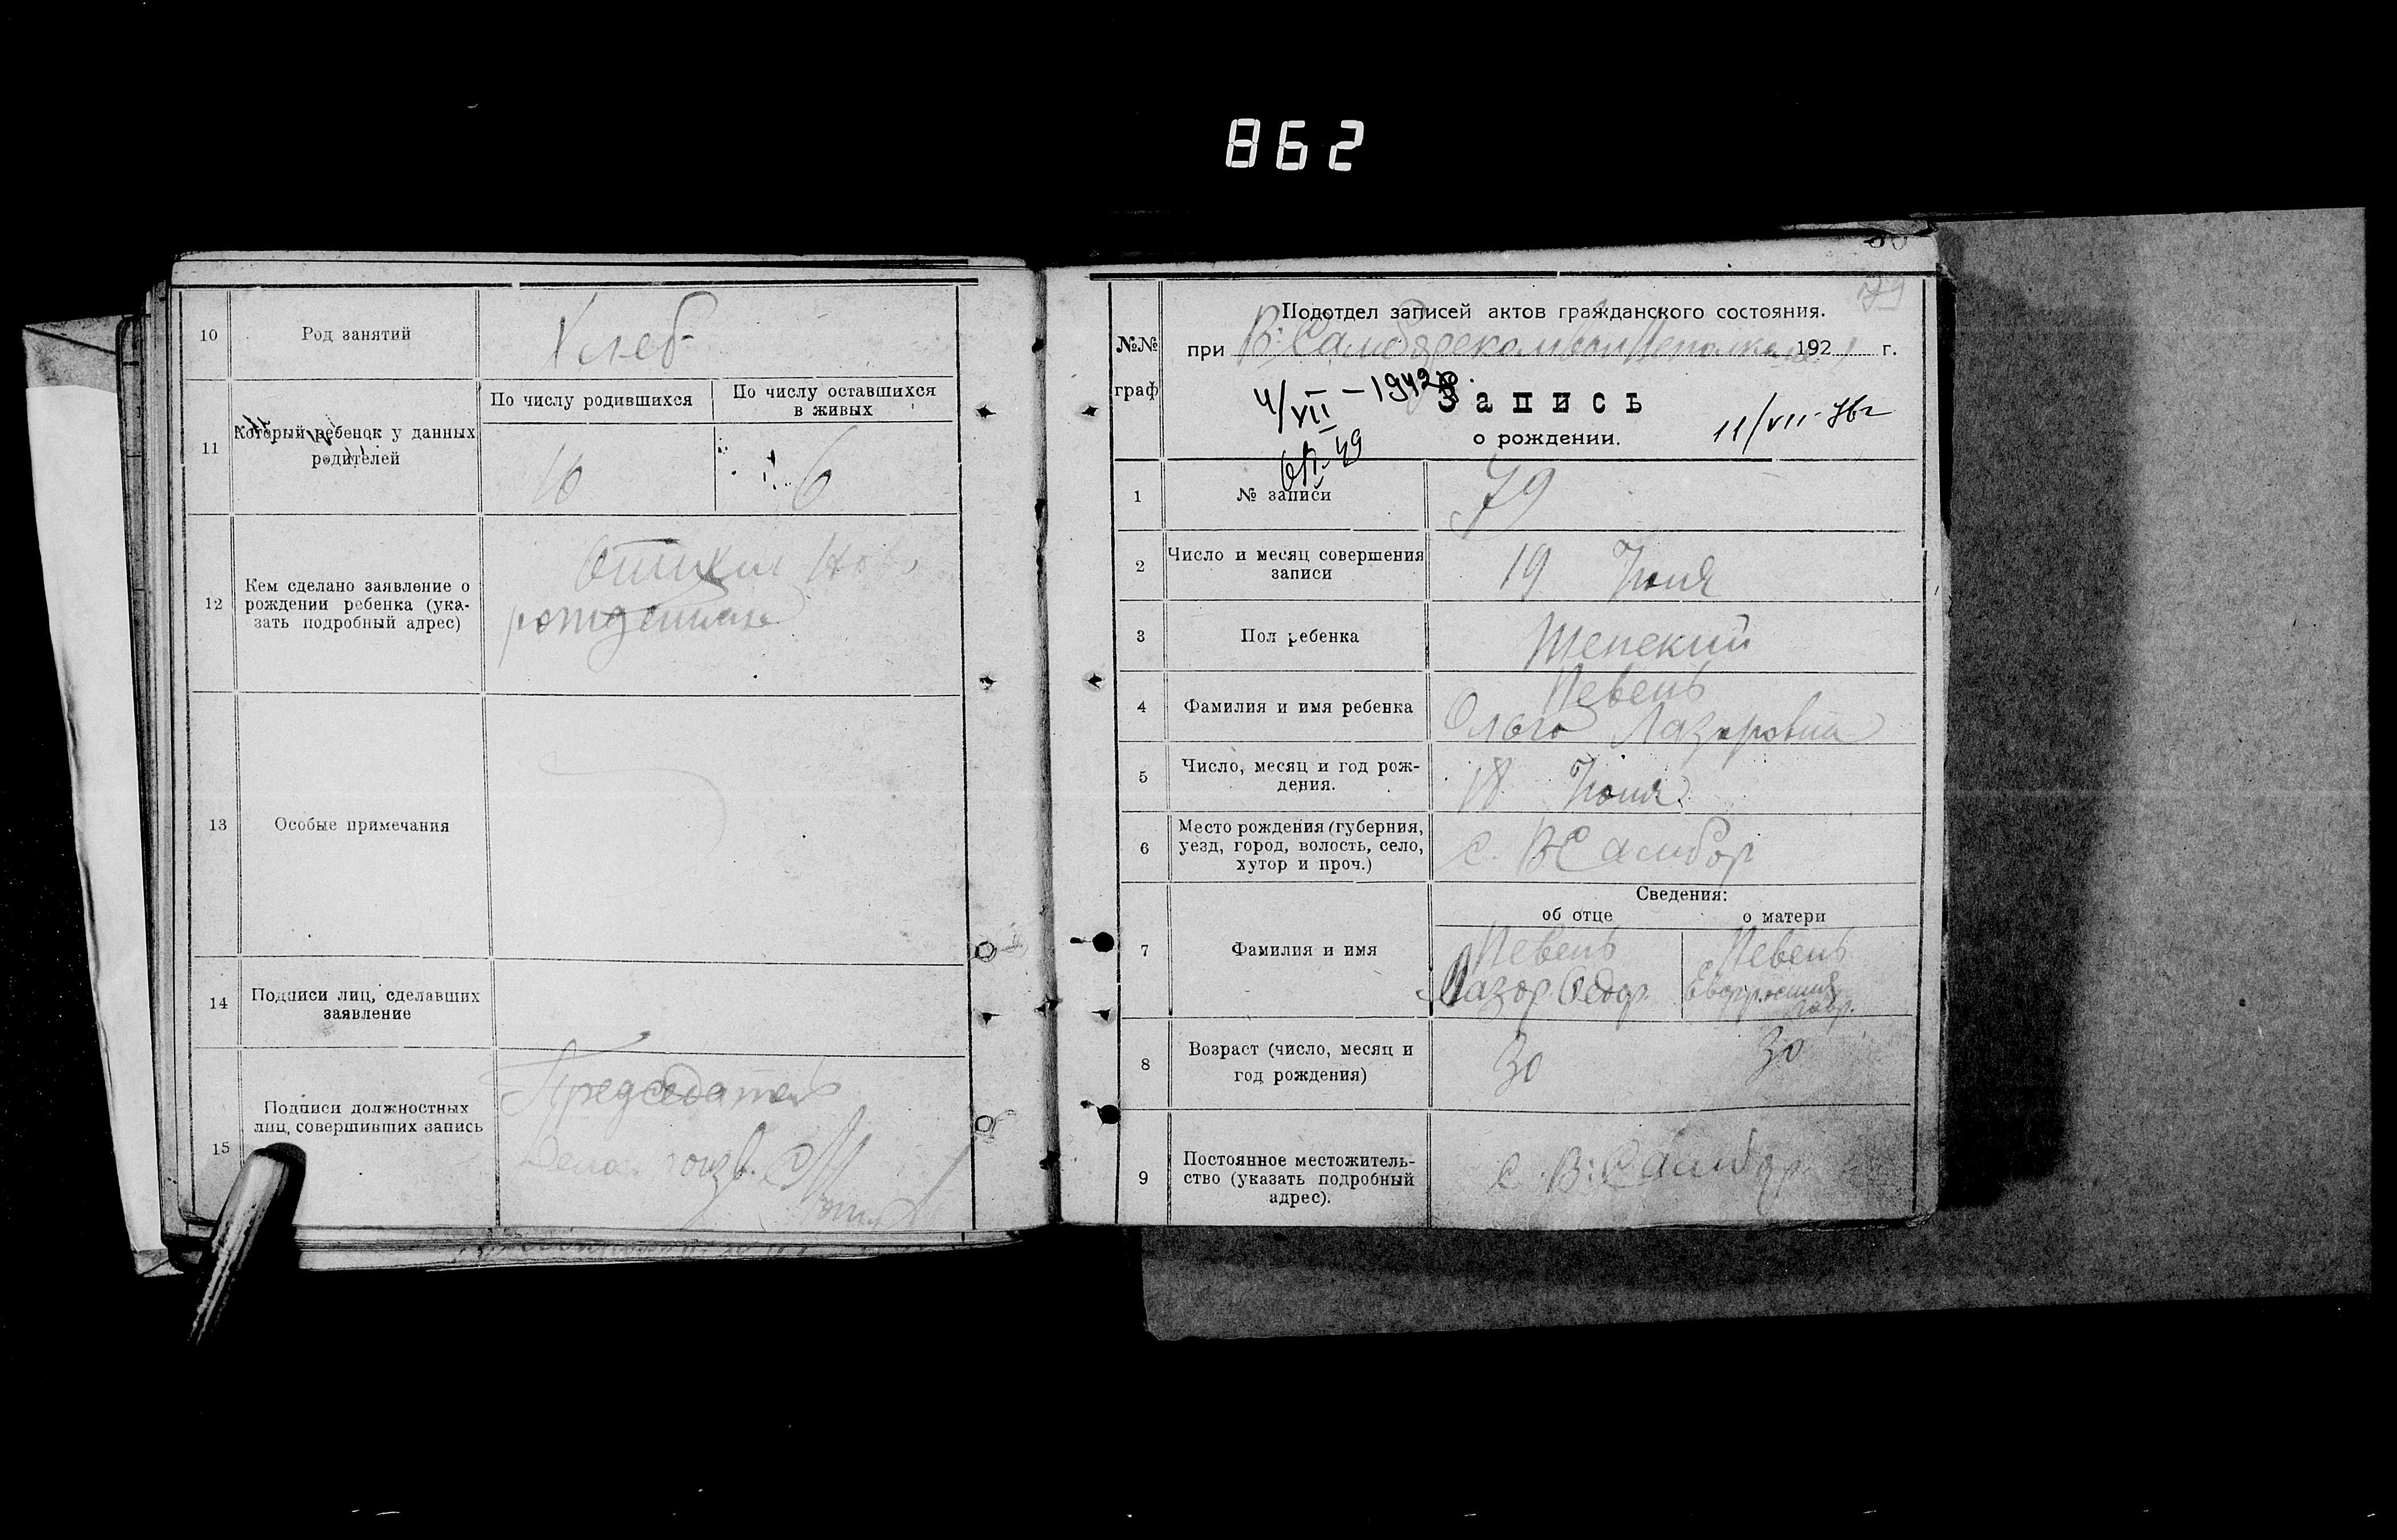 862
10
Род занятий
Хлеб
11
Который ребенок у данных
родителей
По числу родившихся
По числу оставшихся
в живых
10
6
12
Кем сделано заявление о
рождении ребенка (ука-
зать подробный адрес)
Нов
рожденного
13
Особые примечания
14
Подписи лиц, сделавших
заявление
15
Подписи должностных
лиц, совершивших запись
Председатель
79
№№
граф
Подотдел записей актов гражданского состояния.
при В: 192 г.
4/VII – 1942
Запись
о рождении.
11/VII-76г
1
№ записи
79
2
Число и месяц совершения
записи
19 Июня
3
Пол ребенка
Женский
4
Фамилия и имя ребенка
Певень
Ольга Лазоровна
5
Число, месяц и год рож-
дения.
18 Июня
6
Место рождения (губерния,
уезд, город, волость, село,
хутор и проч.)
с. В Самбор
Сведения:
об отце
о матери
7
Фамилия и имя
Певень
Лазор Федор.
Певень
8
Возраст (число, месяц и
год рождения)
30
30
9
Постоянное местожитель-
ство (указать подробный
адрес).
с. В: Самбор